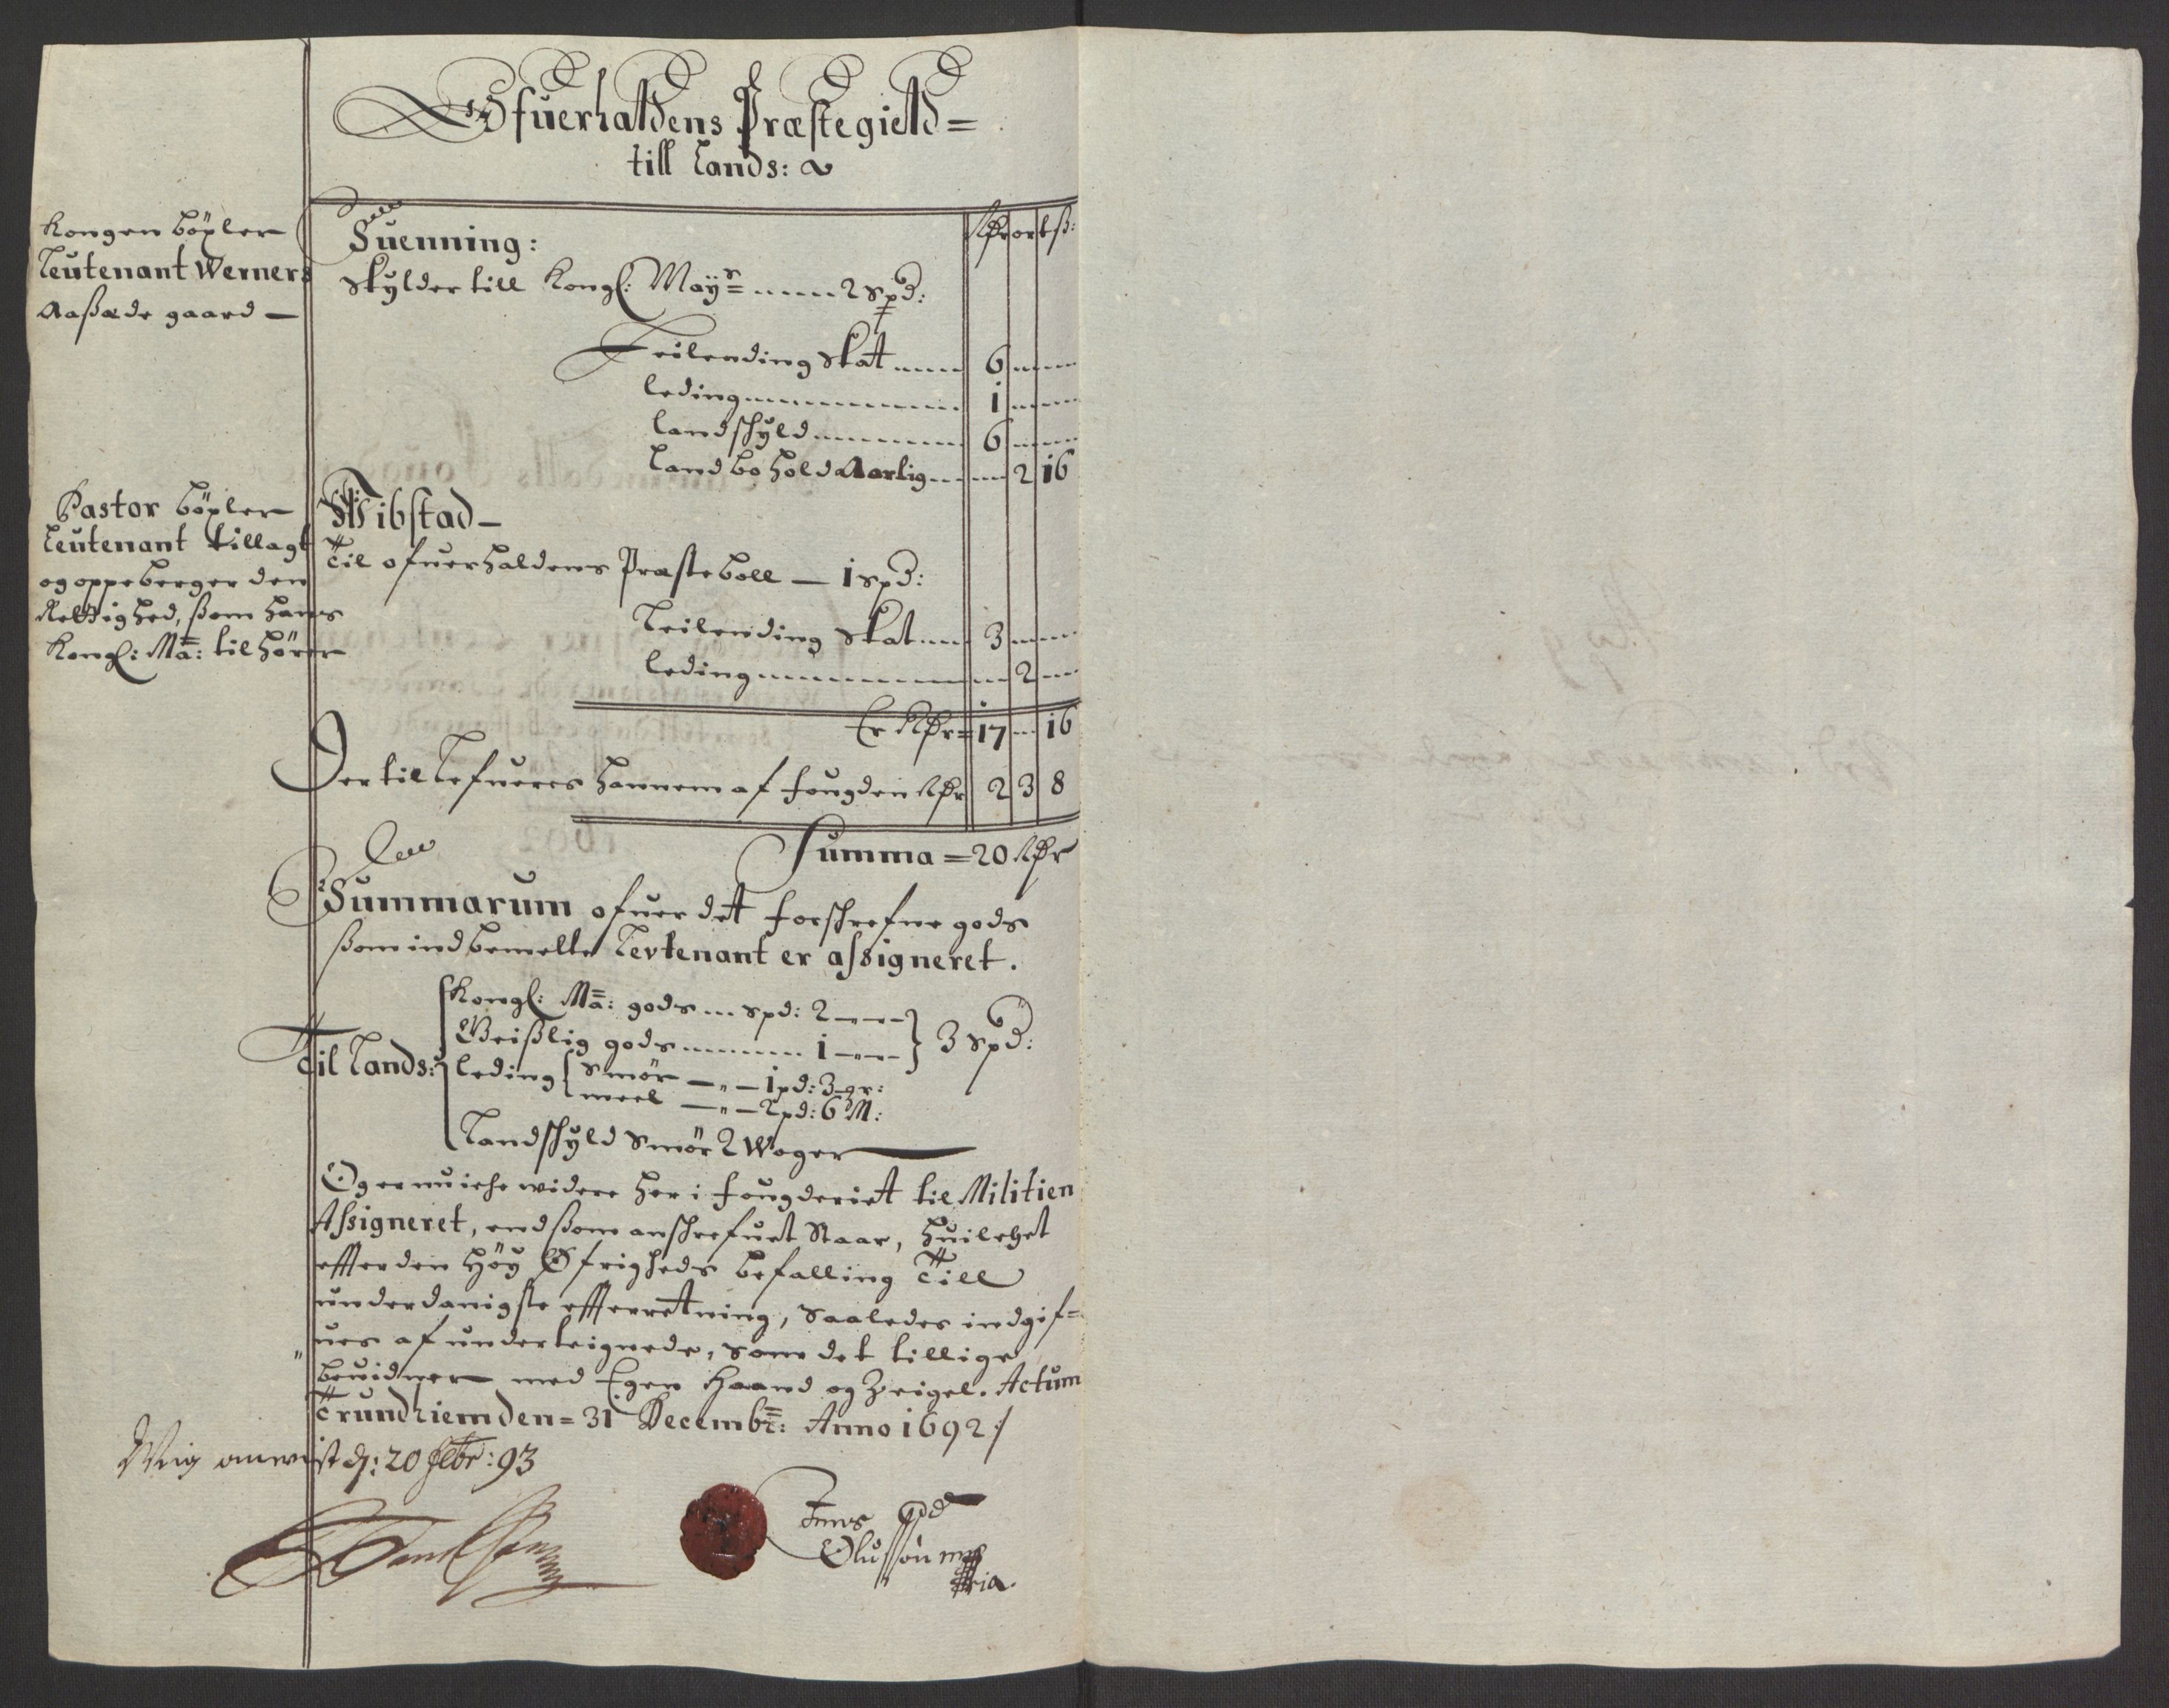 Ofuerhaldens Præstegield=
till Lands:
Kongen böxler
Leutenant Werners
Aaßæde gaard —
Rdr ort ß:
Suenning:
Skylder till Kongl: Mayts ..... 2 spd:
Leilending Skat ..... 6 ......
leding ............. 1 ......
landschyld .......... 6 ......
Landboholds Aarlig ...... 2 16
Pastor böxler
Leutenant tillagt
og oppeberger den
Rettighed, ßom hans
Kongl: Ma: tilhörer
Wibstad —
Til ofuerhaldens Præsteboll — 1 spd:
Leilending Skat .... 3 .....
leding ............ 2 ....
Er Rdr = 17 ... 16
Dertil Lefueres hannem af fougden Rdr 2 3 8
Summa = 20 Rdr
Summarum ofuer det forschrefne gods
ßom indbemelte Levtenant er assigneret.
Til Lands:
Kongl: Ma: gods ... spd: 2 — — —
Geißlig gods .......... 1 — — — 3 spd:
leding Smör — " — 1 pd: 3 gr:
meel — " — 2 pd: 6 M:
Landschyld Smör 2 Woger
Og er nu iche widere her i fougderiet til Militien
Assigneret, end ßom anschrefuet Staar, huilchet
effter den höy Øfrigheds befalling Till
underdanigste effterretning, Saaledes indgif=
ues af underteignede, som det tillige
beuidner med Egen Haand og Zeigel. Actum
Trundhiem den = 31 Decembr: Anno 1692 /
Meig anwist d: 20 Febr: 93
Olufsön mp
pria.